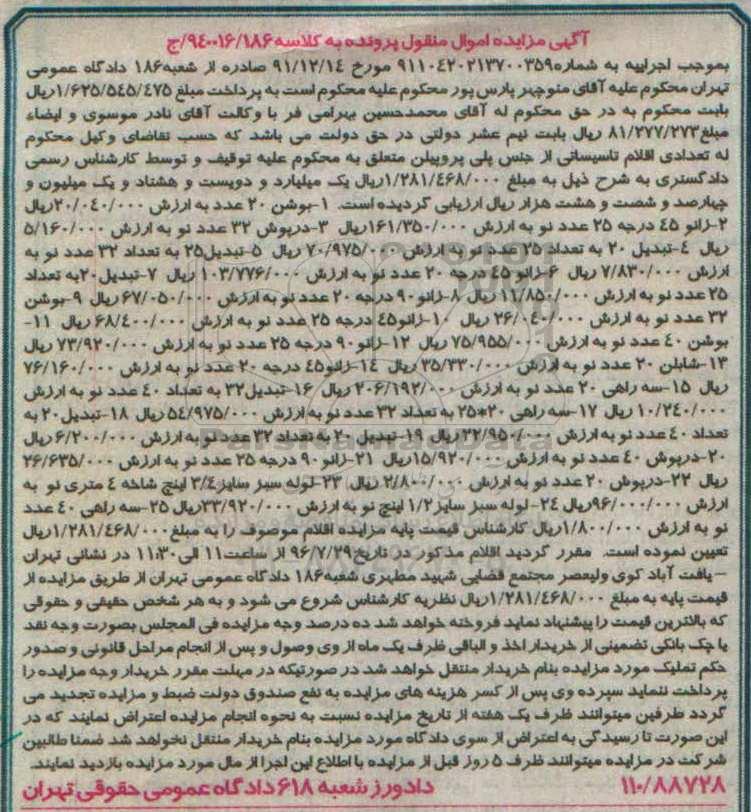 آگهی مزایده اموال منقول پرونده به کلاسه ۹٤۰۰۱۶/۱۸۶/ج
بموجب اجراییه به شماره۹۱۱۰٤۲۰۲۱۳۷۰۰۳۵۹ مورخ ۹۱/۱۲/۱٤ صادره از شعبه۱۸۶ دادگاه عمومی
تهران محکوم علیه آقای منوچهر پارس پور محکوم علیه محکوم است به پرداخت مبلغ ۱/۶۲۵/۵٤۵/٤۷۵ریال
بابت محکوم به در حق محکوم له آقای محمدحسین بهرامی فر با وکالت آقای نادر موسوی و ایضاء
مبلغ۸۱/۲۷۷/۲۷۳ ریال بابت نیم عشر دولتی در حق دولت می باشد که حسب تقاضای وکیل محکوم
له تعدادی اقلام تاسیساتی از جنس پلی پروپیلن متعلق به محکوم علیه توقیف و توسط کارشناس رسمی
دادگستری به شرح ذیل به مبلغ ۱/۲۸۱/٤۶۸/۰۰۰ریال یک میلیارد و دویست و هشتاد و یک میلیون و
چهارصد و شصت و هشت هزار ریال ارزیابی گردیده است. ۱-بوشن ۲۰ عدد به ارزش ۲۰/۰٤۰/۰۰۰ریال
۲-زانو ٤۵ درجه ۲۵ عدد نو به ارزش ۱۶۱/۳۵۰/۰۰۰ریال ۳-درپوش ۳۲ عدد نو به ارزش ۵/۱۶۰/۰۰۰
ریال ٤-تبدیل ۲۰ به تعداد ۲۵ عدد نو به ارزش ۷۰/۹۷۵/۰۰۰ ریال ۵-تبدیل۲۵ به تعداد ۳۲ عدد نو به
ارزش ۷/۸۳۰/۰۰۰ ریال ۶-زانو ٤۵ درجه ۲۰ عدد نو به ارزش ۱۰۳/۷۷۶/۰۰۰ ریال ۷-تبدیل۲۰به تعداد
۲۵ عدد نو به ارزش ۱۱/۸۵۰/۰۰۰ ریال ۸-زانو۹۰ درجه ۲۰ عدد نو به ارزش ۶۷/۰۵۰/۰۰۰ریال ۹-بوشن
۳۲ عدد نو به ارزش ۲۶/۰٤۰/۰۰۰ ریال ۱۰-زانو٤۵ درجه ۲۵ عدد نو به ارزش ۶۸/٤۰۰/۰۰۰ ریال ۱۱-
بوشن ٤۰ عدد نو به ارزش ۷۵/۹۵۵/۰۰۰ ریال ۱۲-زانو۹۰ درجه ۲۵ عدد نو به ارزش ۷۳/۹۲۰/۰۰۰ ریال
۱۳-شابلن ۲۰ عدد نو به ارزش ۳۵/۳۳۰/۰۰۰ ریال ۱٤-زانو٤۵ درجه ۲۰ عدد نو به ارزش ۷۶/۱۶۰/۰۰۰
ریال ۱۵-سه راهی ۲۰ عدد نو به ارزش ۲۰۶/۱۹۲/۰۰۰ ریال ۱۶-تبدیل۳۲ به تعداد ٤۰ عدد نو به ارزش
۱۰/۲٤۰/۰۰۰ ریال ۱۷-سه راهی ۲۰*۲۵ به تعداد ۳۲ عدد نو به ارزش ۵٤/۹۷۵/۰۰۰ ریال ۱۸-تبدیل۲۰ به
تعداد ٤۰ عدد نو به ارزش ۳۲/۹۵۰/۰۰۰ ریال ۱۹-تبدیل ۲۰ به تعداد ۳۲ عدد نو به ارزش ۶/۲۰۰/۰۰۰ ریال
۲۰-درپوش ٤۰ عدد نو به ارزش ۱۵/۹۲۰/۰۰۰ریال ۲۱-زانو ۹۰ درجه ۲۵ عدد نو به ارزش ۲۶/۶۳۵/۰۰۰
ریال ۲۲-درپوش ۲۰ عدد نو به ارزش ۲/۸۰۰/۰۰۰ ریال ۲۳-لوله سبز سایز۳/٤ اینچ شاخه ٤ متری نو به
ارزش ۹۶/۰۰۰/۰۰۰ریال ۲٤-لوله سبز سایز ۱/۲ اینچ نو به ارزش ۳۳/۹۲۰/۰۰۰ریال ۲۵-سه راهی ٤۰ عدد
نو به ارزش ۱/۸۰۰/۰۰۰ ریال کارشناس قیمت پایه مزایده اقلام موصوف را به مبلغ۱/۲۸۱/٤۶۸/۰۰۰ریال
تعیین نموده است. مقرر گردید اقلام مذکور در تاریخ۹۶/۷/۲۹ از ساعت۱۱ الی۱۱:۳۰ در نشانی تهران
-یافت آباد کوی ولیعصر مجتمع قضایی شهید مطهری شعبه۱۸۶ دادگاه عمومی تهران از طریق مزایده از
قیمت پایه به مبلغ ۱/۲۸۱/٤۶۸/۰۰۰ریال نظریه کارشناس شروع می شود و به هر شخص حقیقی و حقوقی
که بالاترین قیمت را پیشنهاد نماید فروخته خواهد شد ده درصد وجه مزایده فی المجلس بصورت وجه نقد
یا چک بانکی تضمینی از خریدار اخذ و الباقی ظرف یک ماه از وی وصول و پس از انجام مراحل قانونی و صدور
حکم تملیک مورد مزایده بنام خریدار منتقل خواهد شد در صورتیکه در مهلت مقرر خریدار وجه مزایده را
پرداخت ننماید سپرده وی پس از کسر هزینه های مزایده به نفع صندوق دولت ضبط و مزایده تجدید می
گردد طرفین میتوانند ظرف یک هفته از تاریخ مزایده نسبت به نحوه انجام مزایده اعتراض نمایند که در
این صورت تا رسیدگی به اعتراض از سوی دادگاه مورد مزایده بنام خریدار منتقل نخواهد شد ضمنا طالبین
شرکت در مزایده میتوانند ظرف ۵ روز قبل از مزایده با اطلاع این اجرا از مال مورد مزایده بازدید نمایند.
۱۱۰/۸۸۷۲۸ دادورز شعبه ۶۱۸ دادگاه عمومی حقوقی تهران